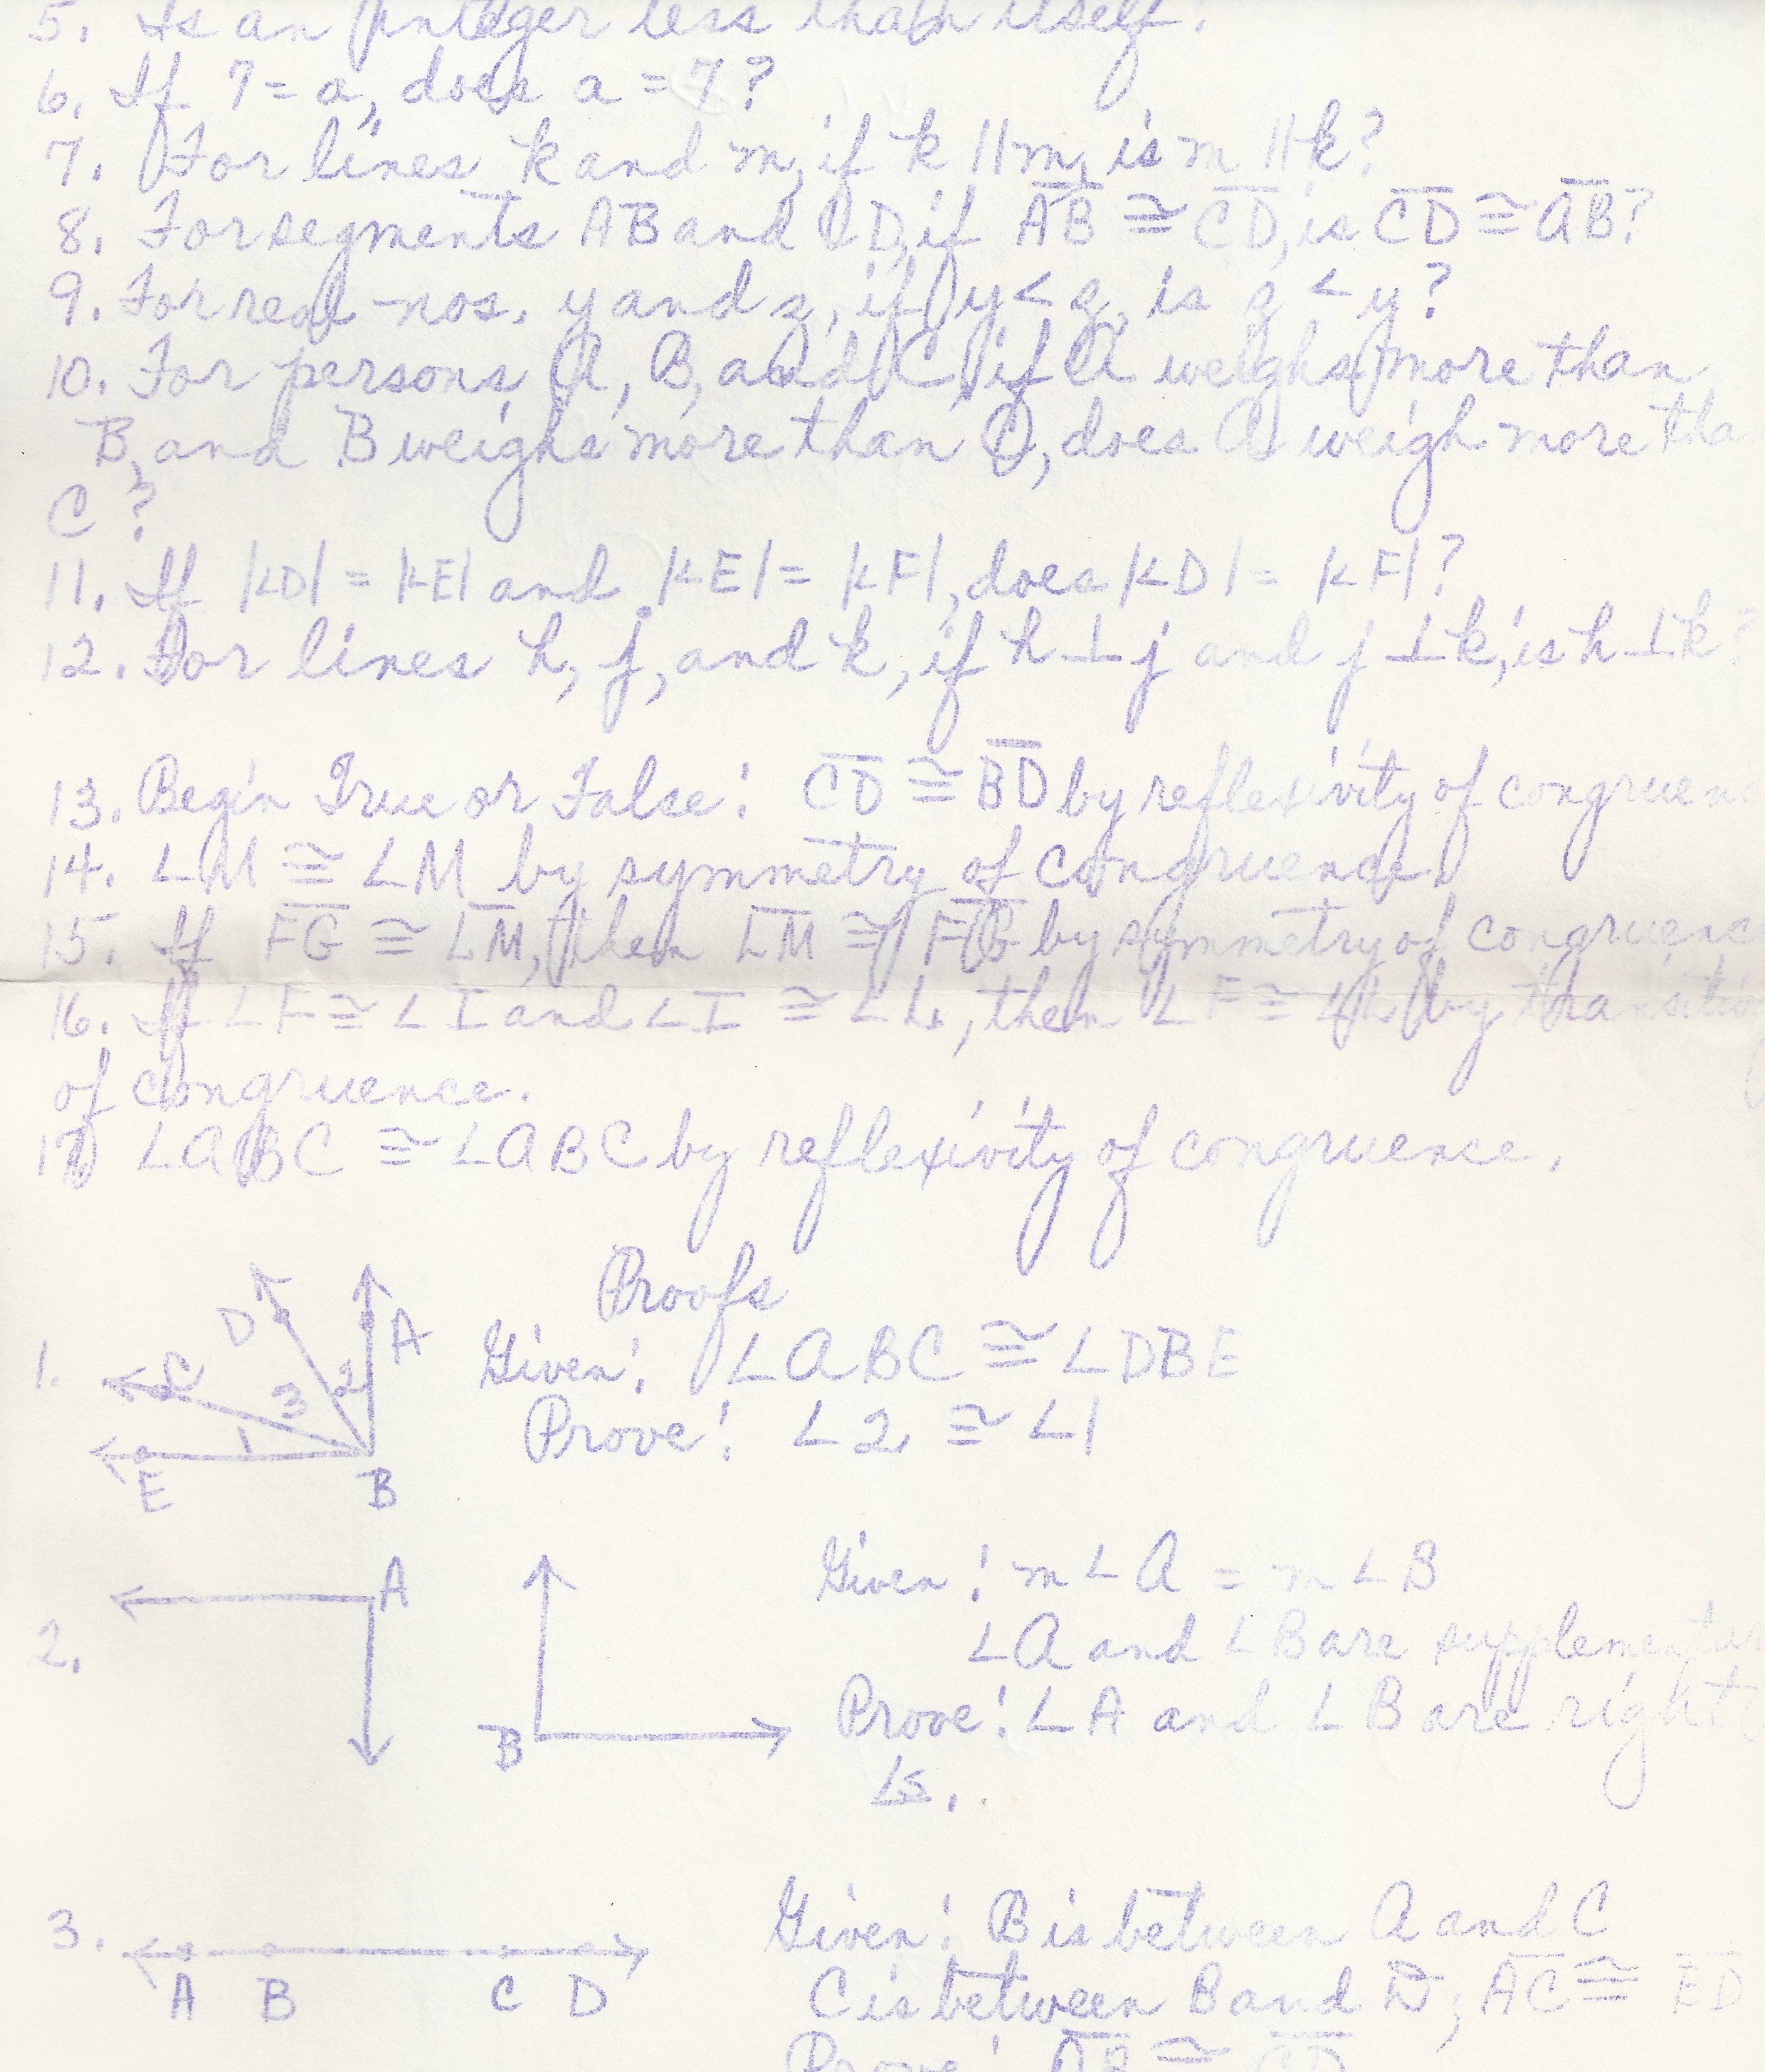 5. Is an integer less than itself.
6. If 7 = a, does a = 7?
7. For lines k and m, if k || m, is m || k?
8. For segments AB and CD, if A̅B̅ ≅ C̅D̅, is C̅D̅ ≅ A̅B̅?
9. For real nos. y and z, if y < z, is z < y?
10. For persons A, B, and C, if A weighs more than
B, and B weighs more than C, does A weigh more tha
C?
11. If |∠D| = |∠E| and |∠E| = |∠F|, does |∠D| = |∠F|?
12. For lines h, j, and k, if h ⊥ j and j ⊥ k, is h ⊥ k?
13. Begin True or False: C̅D̅ ≅ B̅D̅ by reflexivity of congruen
14. ∠M ≅ ∠M by symmetry of congruence.
15. If F̅G̅ ≅ L̅M̅, then L̅M̅ ≅ F̅G̅ by symmetry of congruence
16. If ∠F ≅ ∠I and ∠I ≅ ∠L, then ∠F ≅ ∠L by transitiv
of congruence.
17. ∠ABC ≅ ∠ABC by reflexivity of congruence.
Proofs
1. D A C 3 2 1 E B
Given: ∠ABC ≅ ∠DBE
Prove: ∠2 ≅ ∠1
2. A B
Given: m∠A = m∠B
∠A and ∠B are supplementar
Prove: ∠A and ∠B are right
∠s.
3. A B C D
Given: B is between A and C
C is between B and D; A̅C̅ ≅ B̅D̅
Prove: A̅B̅ ≅ C̅D̅